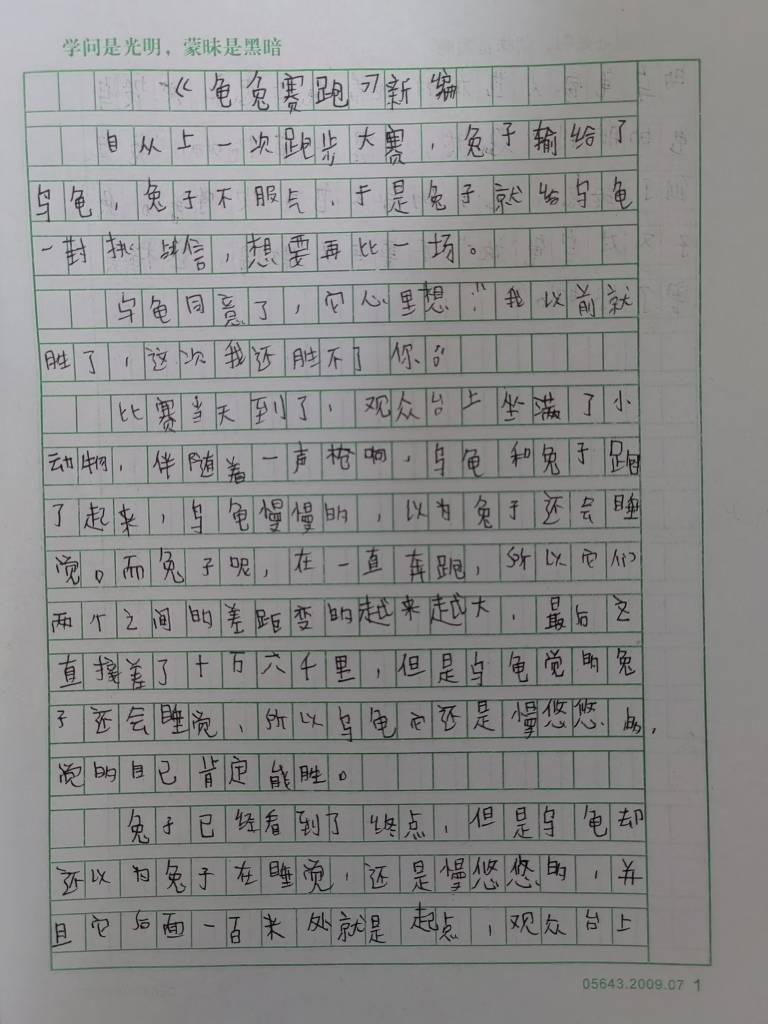 学问是光明，蒙昧是黑暗
《龟兔赛跑》新编
自从上一次跑步大赛，兔子输给了
乌龟，兔子不服气，于是兔子就给乌龟
一封挑战信，想要再比一场。
乌龟同意了，它心里想：“我以前就
胜了，这次我还胜不了你。”
比赛当天到了，观众台上坐满了小
动物，伴随着一声枪响，乌龟和兔子跑
了起来，乌龟慢慢的，以为兔子还会睡
觉。而兔子呢，在一直奔跑，所以它们
两个之间的差距变的越来越大，最后之
直接差了十万六千里，但是乌龟觉的兔
子还会睡觉，所以乌龟它还是慢悠悠的，
觉的自己肯定能胜。
兔子已经看到了终点，但是乌龟却
还以为兔子在睡觉，还是慢悠悠的，并
且它后面一百米处就是起点，观众台上
05643.2009.07 1